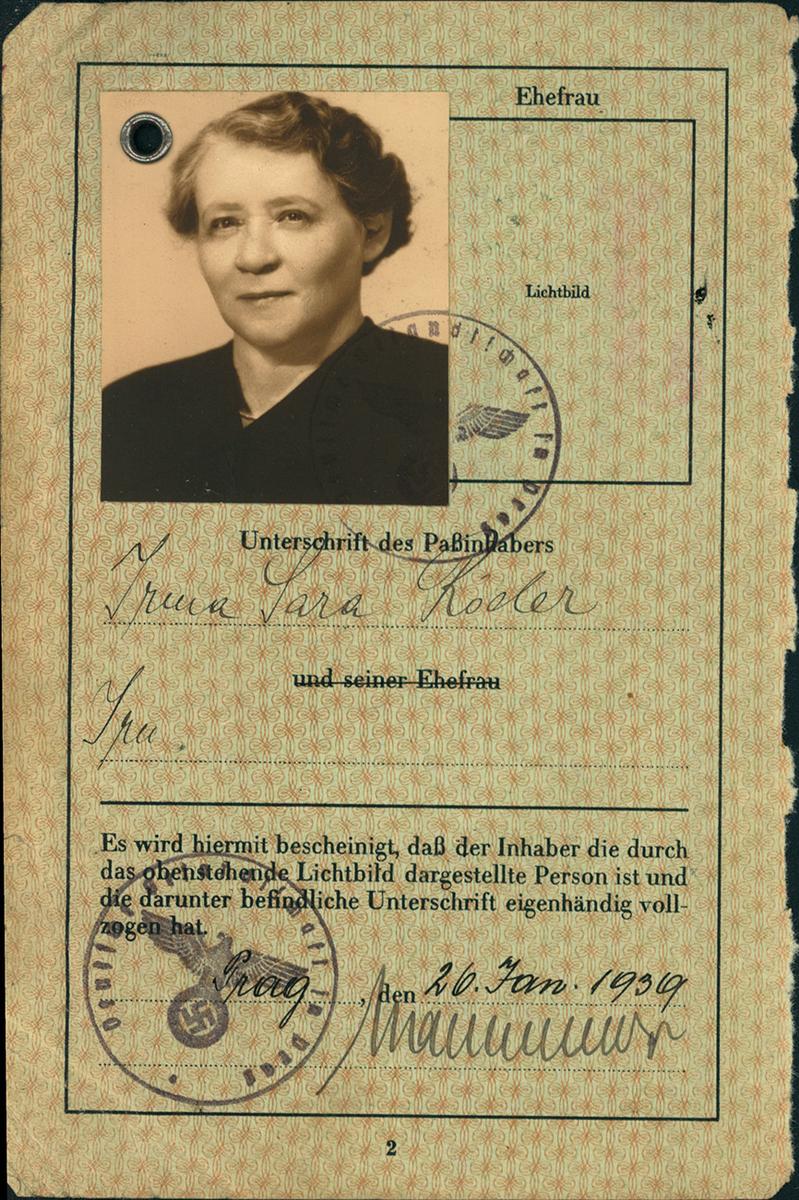 Ehefrau
Lichtbild
Deutsche Gesandtschaft in Prag
Unterschrift des Paßinhabers
Irma Sara Köder
und seiner Ehefrau
Irm
Es wird hiermit bescheinigt, daß der Inhaber die durch
das obenstehende Lichtbild dargestellte Person ist und
die darunter befindliche Unterschrift eigenhändig voll-
zogen hat.
Deutsche Gesandtschaft in Prag
Prag, den 26. Jan. 1939
2